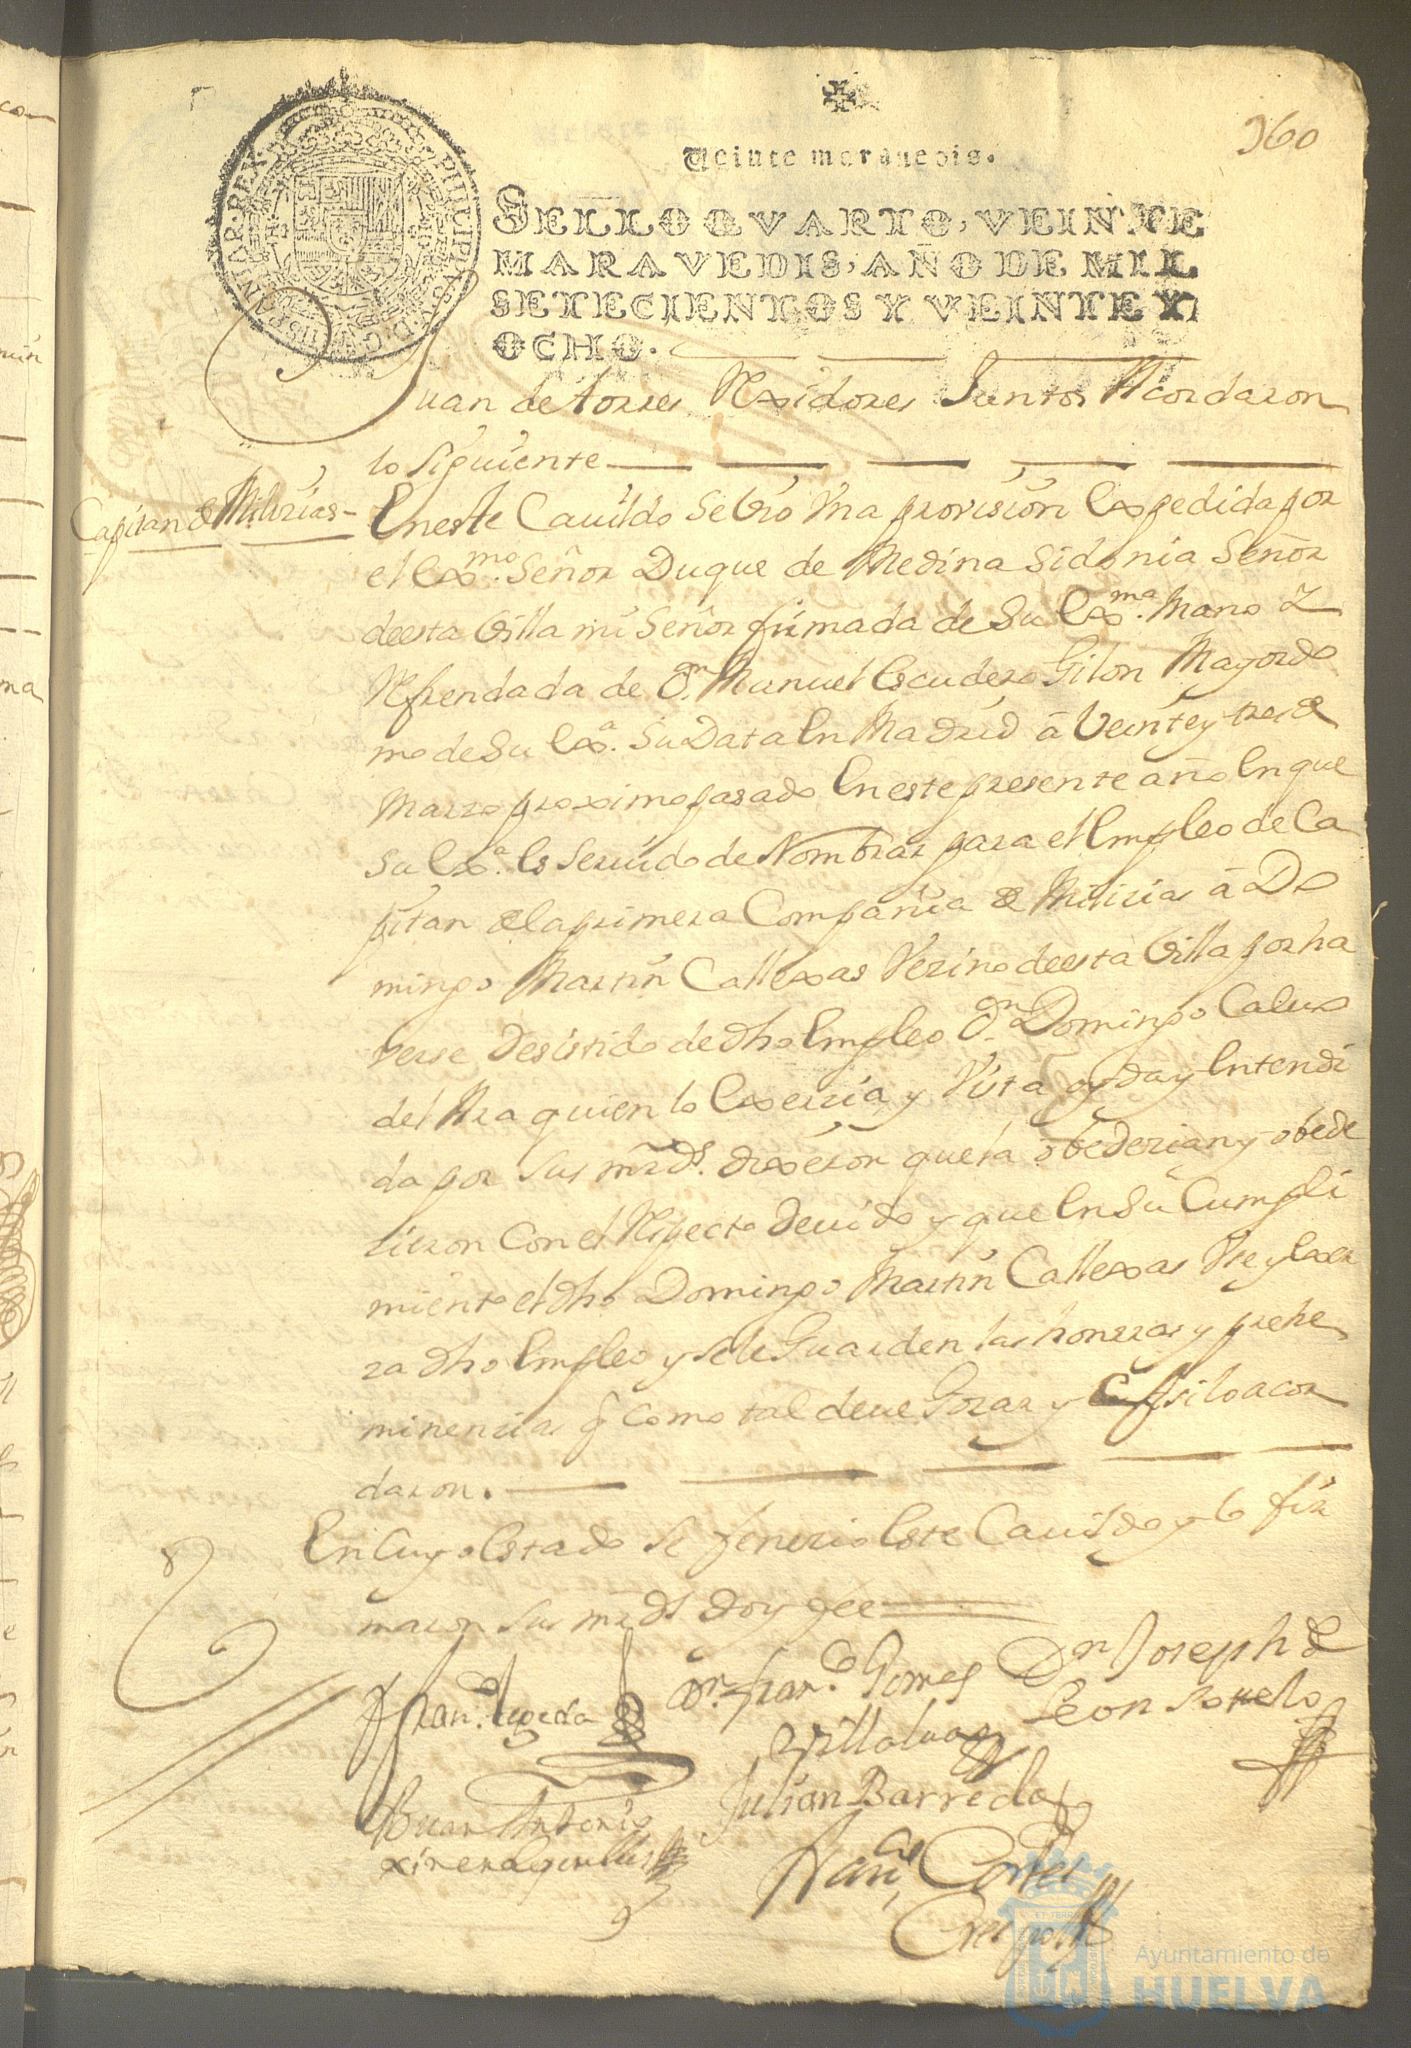 360
Veinte maravedis.
SELLO QVARTO, VEINTE
MARAVEDIS, AÑO DE MIL
SETECIENTOS Y VEINTE Y
OCHO.
Juan de torres Rexidores Juntos Acordaron
lo siguiente
Capitan de Milizias
En este Cauildo se bio Vna provision Expedida por
el Exmo. Señor Duque de Medina Sidonia Señor
de esta Villa mi Señor firmada de Su Exma. Mano y
Refrendada de Dn. Manuel Escudero Gilon Mayordo
mo de Su Exa. Su Data En Madrid â Veinte y tres de
Marzo proximo pasado En este presente año En que
Su Exa. Es Seruido de Nombrar para el Empleo de Ca
pitan de la primera Compañia de Milizias â Do
mingo Martin Callexas Vezino de esta Villa por ha
verse Desistido de dho Empleo Dn. Domingo Caluo
del Ara quien lo Exerzia y Vista oyda y Entendi
da por sus mrds. dixeron que la obedezian y obede
zieron Con el Respecto deuido y que En Su Cumpli
miento el dho Domingo Martin Callexas Vse y Exer
za dho Empleo y se le Guarden las honrras y prehe
minenzias q como tal deue Gozar y asi lo acor
daron.
En Cuyo Estado se fenezio Este Cauildo y lo fir
maron sus mrds doy fee
Fran.co Zepeda
Dn. Fran.co Gomes
Villalua
Dn Joseph de
Leon Sotelo
Juan Antonio
Julian Barreda
Franco Cortes
Crespo
Ayuntamiento de
HUELVA